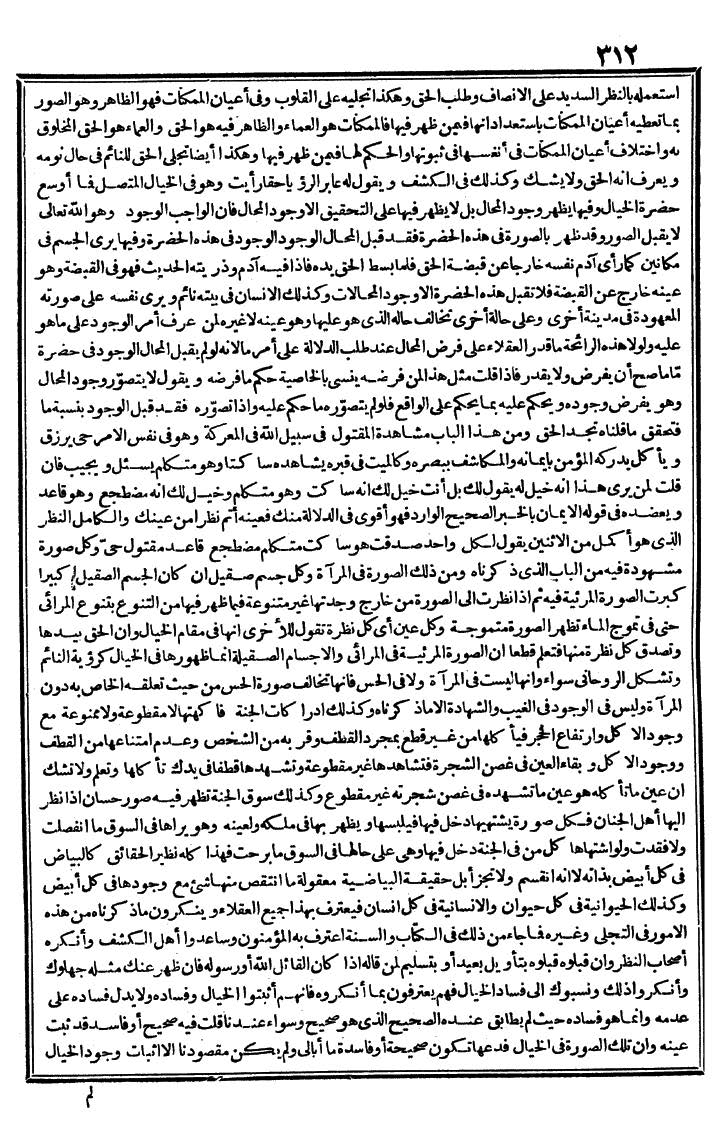 ٣١٢
استعمله بالنظر السديد على الانصاف وطلب الحق وهكذا تجليه على القلوب وفى أعيان الممكنات فهو الظاهر وهو الصور
بما تعطيه أعيان الممكنات باستعداداتها فيمن ظهر فيها فالممكنات هو العماء والظاهر فيه هو الحق والعماء هو الحق المخلوق
به واختلاف أعيان الممكنات فى أنفسها فى ثبوتها والحكم لها فيمن ظهر فيها وهكذا أيضا تجلى الحق للنائم فى حال نومه
ويعرف انه الحق ولا يشك وكذلك فى الكشف ويقول له عابر الرؤيا حقا رأيت وهو فى الخيال المتصل فما أوسع
حضرة الخيال وفيها يظهر وجود المحال بل لا يظهر فيها على التحقيق الا وجود المحال فان الواجب الوجود وهو الله تعالى
لا يقبل الصور وقد ظهر بالصورة فى هذه الحضرة فقد قبل المحال الوجود الوجود فى هذه الحضرة وفيها يرى الجسم فى
مكانين كما رأى آدم نفسه خارجا عن قبضة الحق فلما بسط الحق يده فاذا فيه آدم وذريته الحديث فهو فى القبضة وهو
عينه خارج عن القبضة فلا تقبل هذه الحضرة الا وجود المحالات وكذلك الانسان فى بيته نائم ويرى نفسه على صورته
المعهودة فى مدينة أخرى وعلى حالة أخرى تخالف حاله الذى هو عليها وهو عينه لا غيره لمن عرف أمر الوجود على ما هو
عليه ولولا هذه الرائحة ما قدر العقلاء على فرض المحال عند طلب الدلالة على أمر ما لانه لو لم يقبل المحال الوجود فى حضرة
مّا ما صح أن يفرض ولا يقدر فاذا قلت مثل هذا لمن فرضه ينسى بالخاصية حكم ما فرضه ويقول لا يتصوّر وجود المحال
وهو يفرض وجوده ويحكم عليه بما يحكم على الواقع فلو لم يتصوّره ما حكم عليه واذا تصوّره فقد قبل الوجود بنسبة ما
فتحقق ما قلناه تجد الحق ومن هذا الباب مشاهدة المقتول فى سبيل الله فى المعركة وهو فى نفس الامر حى يرزق
ويأكل يدركه المؤمن بايمانه والمكاشف ببصره وكالميت فى قبره يشاهده ساكتا وهو متكلم يسئل ويجيب فان
قلت لمن يرى هذا انه خيل له يقول لك بل أنت خيل لك انه ساكت وهو متكلم وخيل لك انه مضطجع وهو قاعد
ويعضده فى قوله الايمان بالخبر الصحيح الوارد فهو أقوى فى الدلالة منك فعينه أتم نظرا من عينك والكامل النظر
الذى هو أكمل من الاثنين يقول لكل واحد صدقت هو ساكت متكلم مضطجع قاعد مقتول حىّ وكل صورة
مشهودة فيه من الباب الذى ذكرناه ومن ذلك الصورة فى المرآة وكل جسم صقيل ان كان الجسم الصقيل كبيرا
كبرت الصورة المرئية فيه ثم اذا نظرت الى الصورة من خارج وجدتها غير متنوعة فيما ظهر فيها من التنوع بتنوع المرائى
حتى فى تموج الماء تظهر الصورة متموجة وكل عين أى كل نظرة تقول للأخرى انها فى مقام الخيال وان الحق بيدها
وتصدق كل نظرة منها فتعلم قطعا ان الصورة المرئية فى المرائى والاجسام الصقيلة انما ظهورها فى الخيال كرؤية النائم
وتشكل الروحانى سواء وانها ليست فى المرآة ولا فى الحس فانها تخالف صورة الحس من حيث تعلقه الخاص به دون
المرآة وليس فى الوجود فى الغيب والشهادة الا ما ذكرناه وكذلك ادراكات الجنة فاكهتها لا مقطوعة ولا ممنوعة مع
وجود الاكل وارتفاع الحجر فيأكلها من غير قطع بمجرد القطف وقربه من الشخص وعدم امتناعها من القطف
ووجود الاكل وبقاء العين فى غصن الشجرة فتشاهدها غير مقطوعة وتشهدها قطفا فى يدك تأكلها وتعلم ولا تشك
ان عين ما تأكله هو عين ما تشهده فى غصن شجرته غير مقطوع وكذلك سوق الجنة تظهر فيه صور حسان اذا نظر
اليها أهل الجنان فكل صورة يشتهيها دخل فيها فيلبسها ويظهر بها فى ملكه ولعينه وهو يراها فى السوق ما انفصلت
ولا فقدت ولو اشتهاها كل من فى الجنة دخل فيها وهى على حالها فى السوق ما برحت فهذا كله نظير الحقائق كالبياض
فى كل أبيض بذاته لا انه انقسم ولا تجزأ بل حقيقة البياضية معقولة ما انتقص منها شئ مع وجودها فى كل أبيض
وكذلك الحيوانية فى كل حيوان والانسانية فى كل انسان فيعترف بهذا جميع العقلاء وينكرون ما ذكرناه من هذه
الامور فى التجلى وغيره فما جاء من ذلك فى الكتاب والسنة اعترف به المؤمنون وساعدوا أهل الكشف وأنكره
أصحاب النظر وان قبلوه قبلوه بتأويل بعيد أو بتسليم لمن قاله اذا كان القائل الله أو رسوله فان ظهر عنك مثله جهلوك
وأنكروا ذلك ونسبوك الى فساد الخيال فهم يعترفون بما أنكروه فانهم أثبتوا الخيال وفساده ولا يدل فساده على
عدمه وانما هو فساده حيث لم يطابق عنده الصحيح الذى هو صحيح وسواء عندنا قلت فيه صحيح أو فاسد قد ثبت
عينه وان تلك الصورة فى الخيال فدعها تكون صحيحة أو فاسدة ما أبالى ولم يكن مقصودنا الا اثبات وجود الخيال
لم